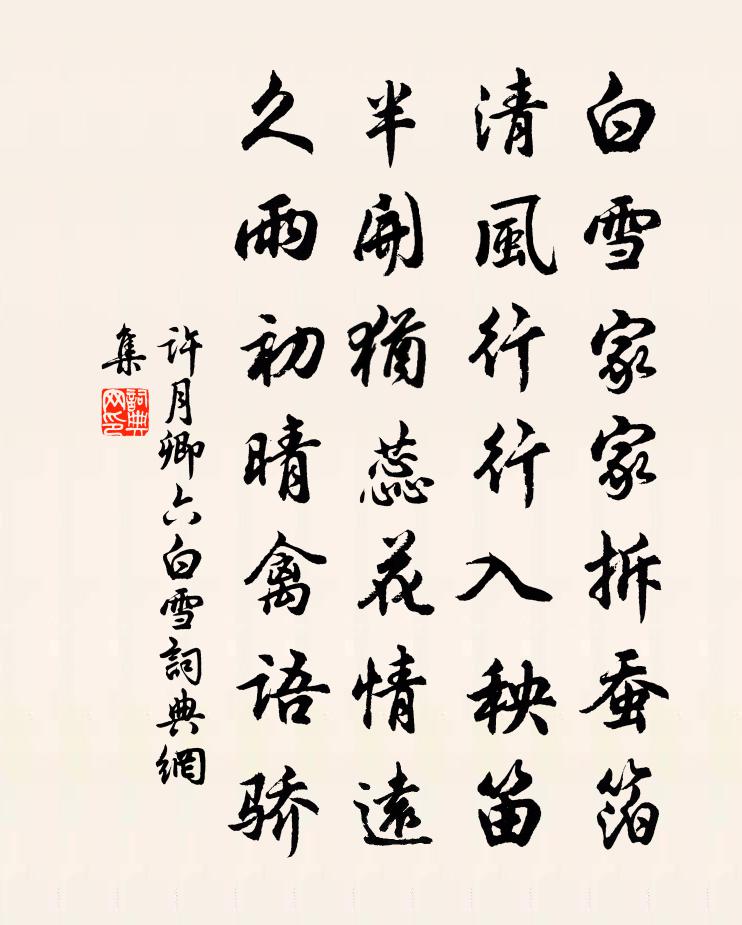 白雪家家拆蚕箔
清風行行入秧笛
半開猶蕊花情遠
久雨初晴禽语骄
许月卿六白雪詞典網
集
詞典
网印